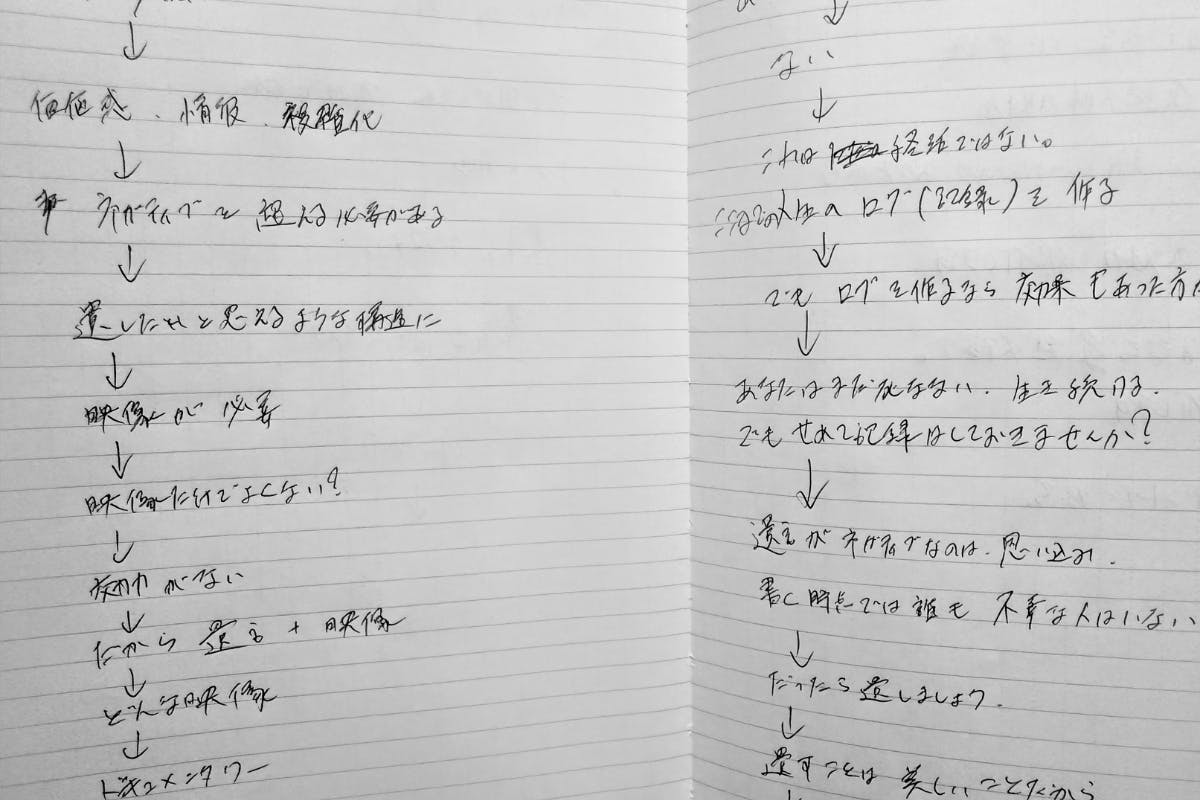 ↓
価値感、情報、複雑化
↓
ネガティブを超える必要がある
↓
遺したいと思えるような構造に
↓
映像が必要
↓
映像だけでよくない?
↓
効力がない
↓
だから遺言+映像
↓
どんな映像
↓
ドキュメンタリー
↓
ない
↓
これは終活ではない。
人生のログ(記録)を作る
↓
でもログを作るなら効果もあった方が
↓
あなたはまだ死なない、生き続ける、
でもせめて記録はしておきませんか?
↓
遺言がネガティブなのは、思い込み、
書く時点では誰も不幸な人はいない
↓
だったら遺しましょう、
↓
遺すことは美しいことだから